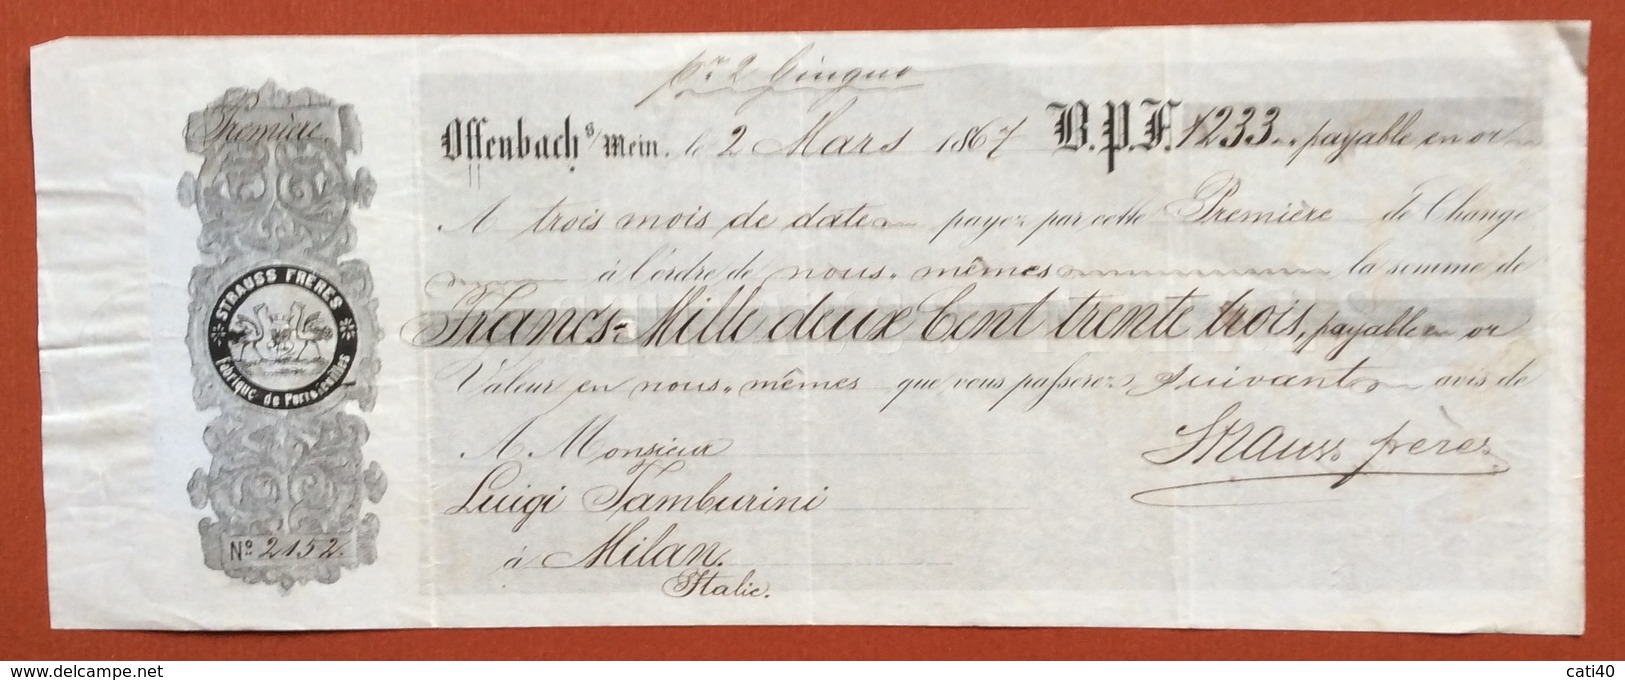 pr 2 Giugno
Première
Offenbach s/Mein, le 2 Mars 1867 B.P.F. 1233 payable en or
A trois mois de date payez par cette Première de Change
à l'ordre de nous-mêmes la somme de
Francs Mille deux Cent trente trois, payable en or
Valeur en nous-mêmes que vous passerez suivant avis de
A Monsieur
Strauss frères
Luigi Tamburini
à Milan.
Italie.
STRAUSS FRÈRES
Fabrique de Portefeuilles
No. 2152.
cati40